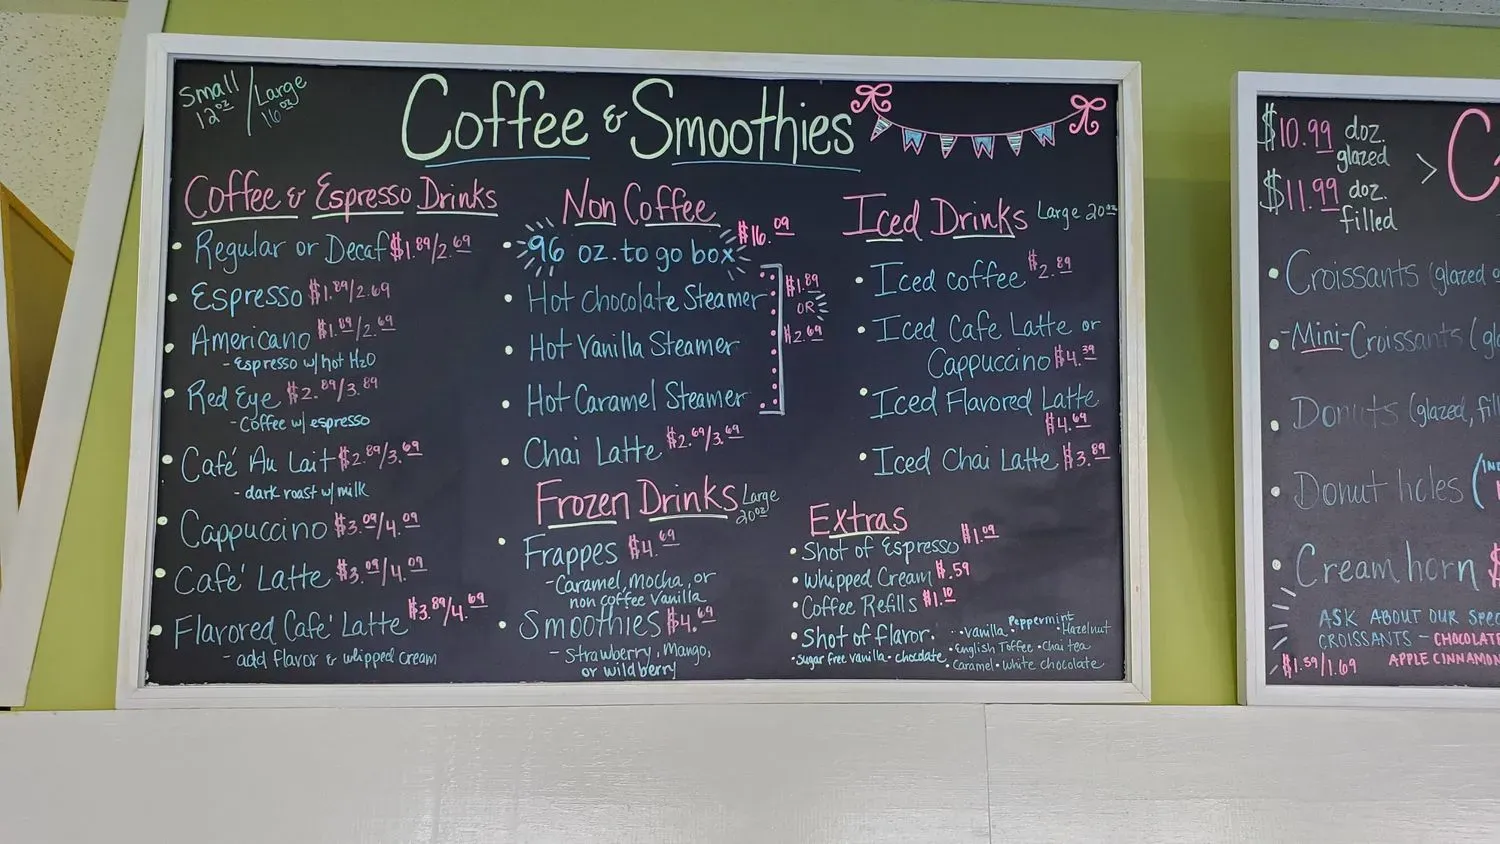 Small 12oz / Large 16oz
Coffee & Smoothies
Coffee & Espresso Drinks
• Regular or Decaf $1.89/2.69
• Espresso $1.89/2.69
• Americano $1.89/2.69
- Espresso w/ hot H2O
• Red Eye $2.89/3.89
- Coffee w/ espresso
• Café Au Lait $2.89/3.69
- dark roast w/ milk
• Cappuccino $3.09/4.09
• Café Latte $3.09/4.09
• Flavored Café Latte $3.89/4.69
- add flavor & whipped cream
Non Coffee
• 96 oz. to go box $16.09
• Hot Chocolate Steamer
• Hot Vanilla Steamer
• Hot Caramel Steamer
$1.89
OR
$2.69
• Chai Latte $2.69/3.69
Frozen Drinks Large 20oz
• Frappes $4.69
- Caramel, Mocha, or
non coffee Vanilla
• Smoothies $4.69
- Strawberry, Mango,
or wildberry
Iced Drinks Large 20oz
• Iced coffee $2.89
• Iced Cafe Latte or
Cappuccino $4.39
• Iced Flavored Latte
$4.69
• Iced Chai Latte $3.89
Extras
• Shot of Espresso $1.09
• Whipped Cream $.59
• Coffee Refills $1.10
• Shot of flavor. • Vanilla • Peppermint • Hazelnut
• English Toffee • Chai tea
• Sugar free vanilla • chocolate • Caramel • White chocolate
$10.99 doz. glazed
$11.99 doz. filled
> C
• Croissants (glazed
• -Mini-Croissants (gla
• Donuts (glazed, fil
• Donut holes (
• Cream horn $
ASK ABOUT OUR SPEC
CROISSANTS - CHOCOLATE
$1.59/1.69 APPLE CINNAMON